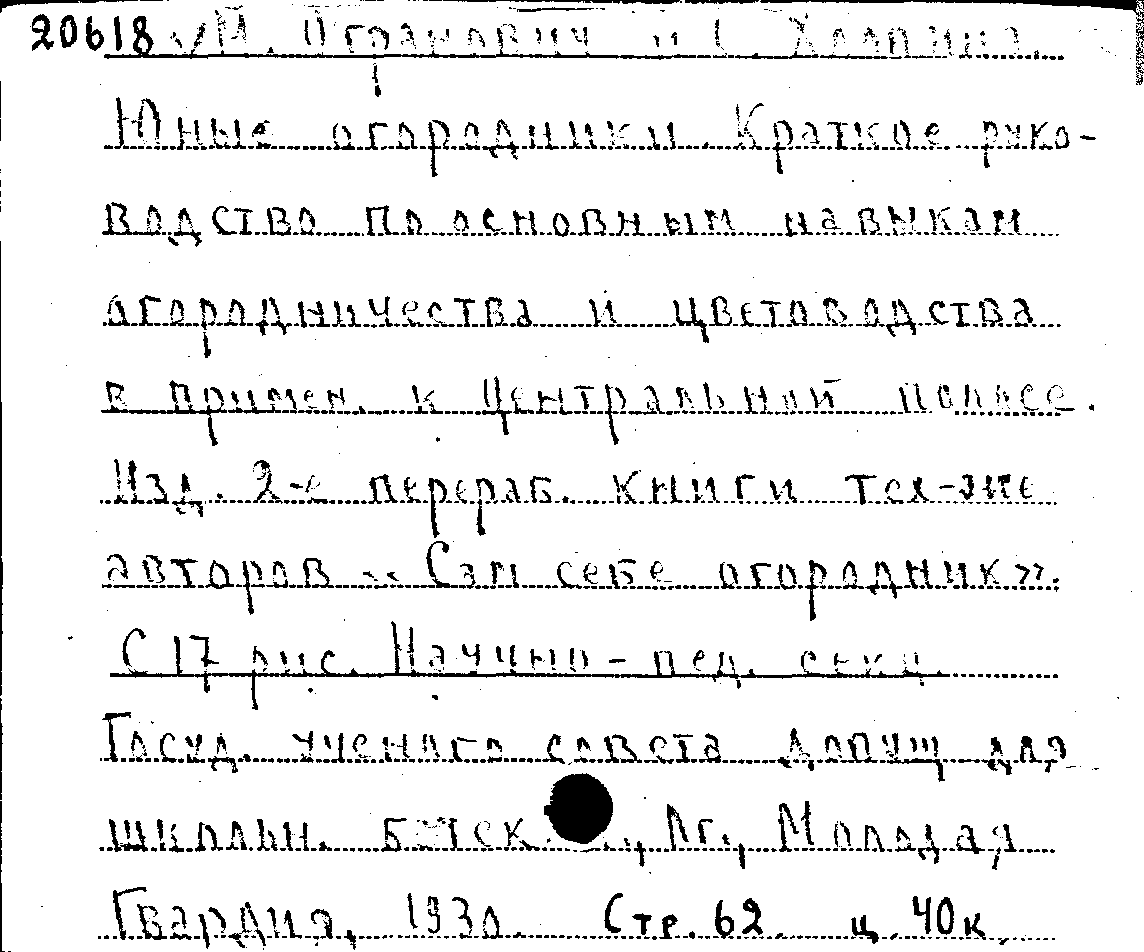 20618 М. Огранович и С. Халпина.
Юные огородники. Краткое руко-
водство по основным навыкам
огородничества и цветоводства
в примен. к Центральной полосе.
Изд. 2-е перераб. книги тех-же
авторов «Сам себе огородник».
С 17 рис. Научно-пед. секц.
Госуд. ученого совета допущ для
школьн. Лг., Молодая
Гвардия, 1930. Стр. 62. ц. 40к.